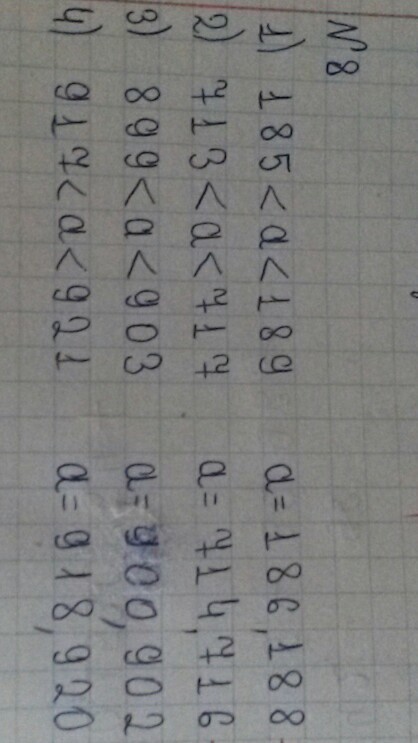 №8
1) 185<a<189 a=186,188
2) 713<a<717 a=714,716
3) 899<a<903 a=900,902
4) 917<a<921 a=918,920